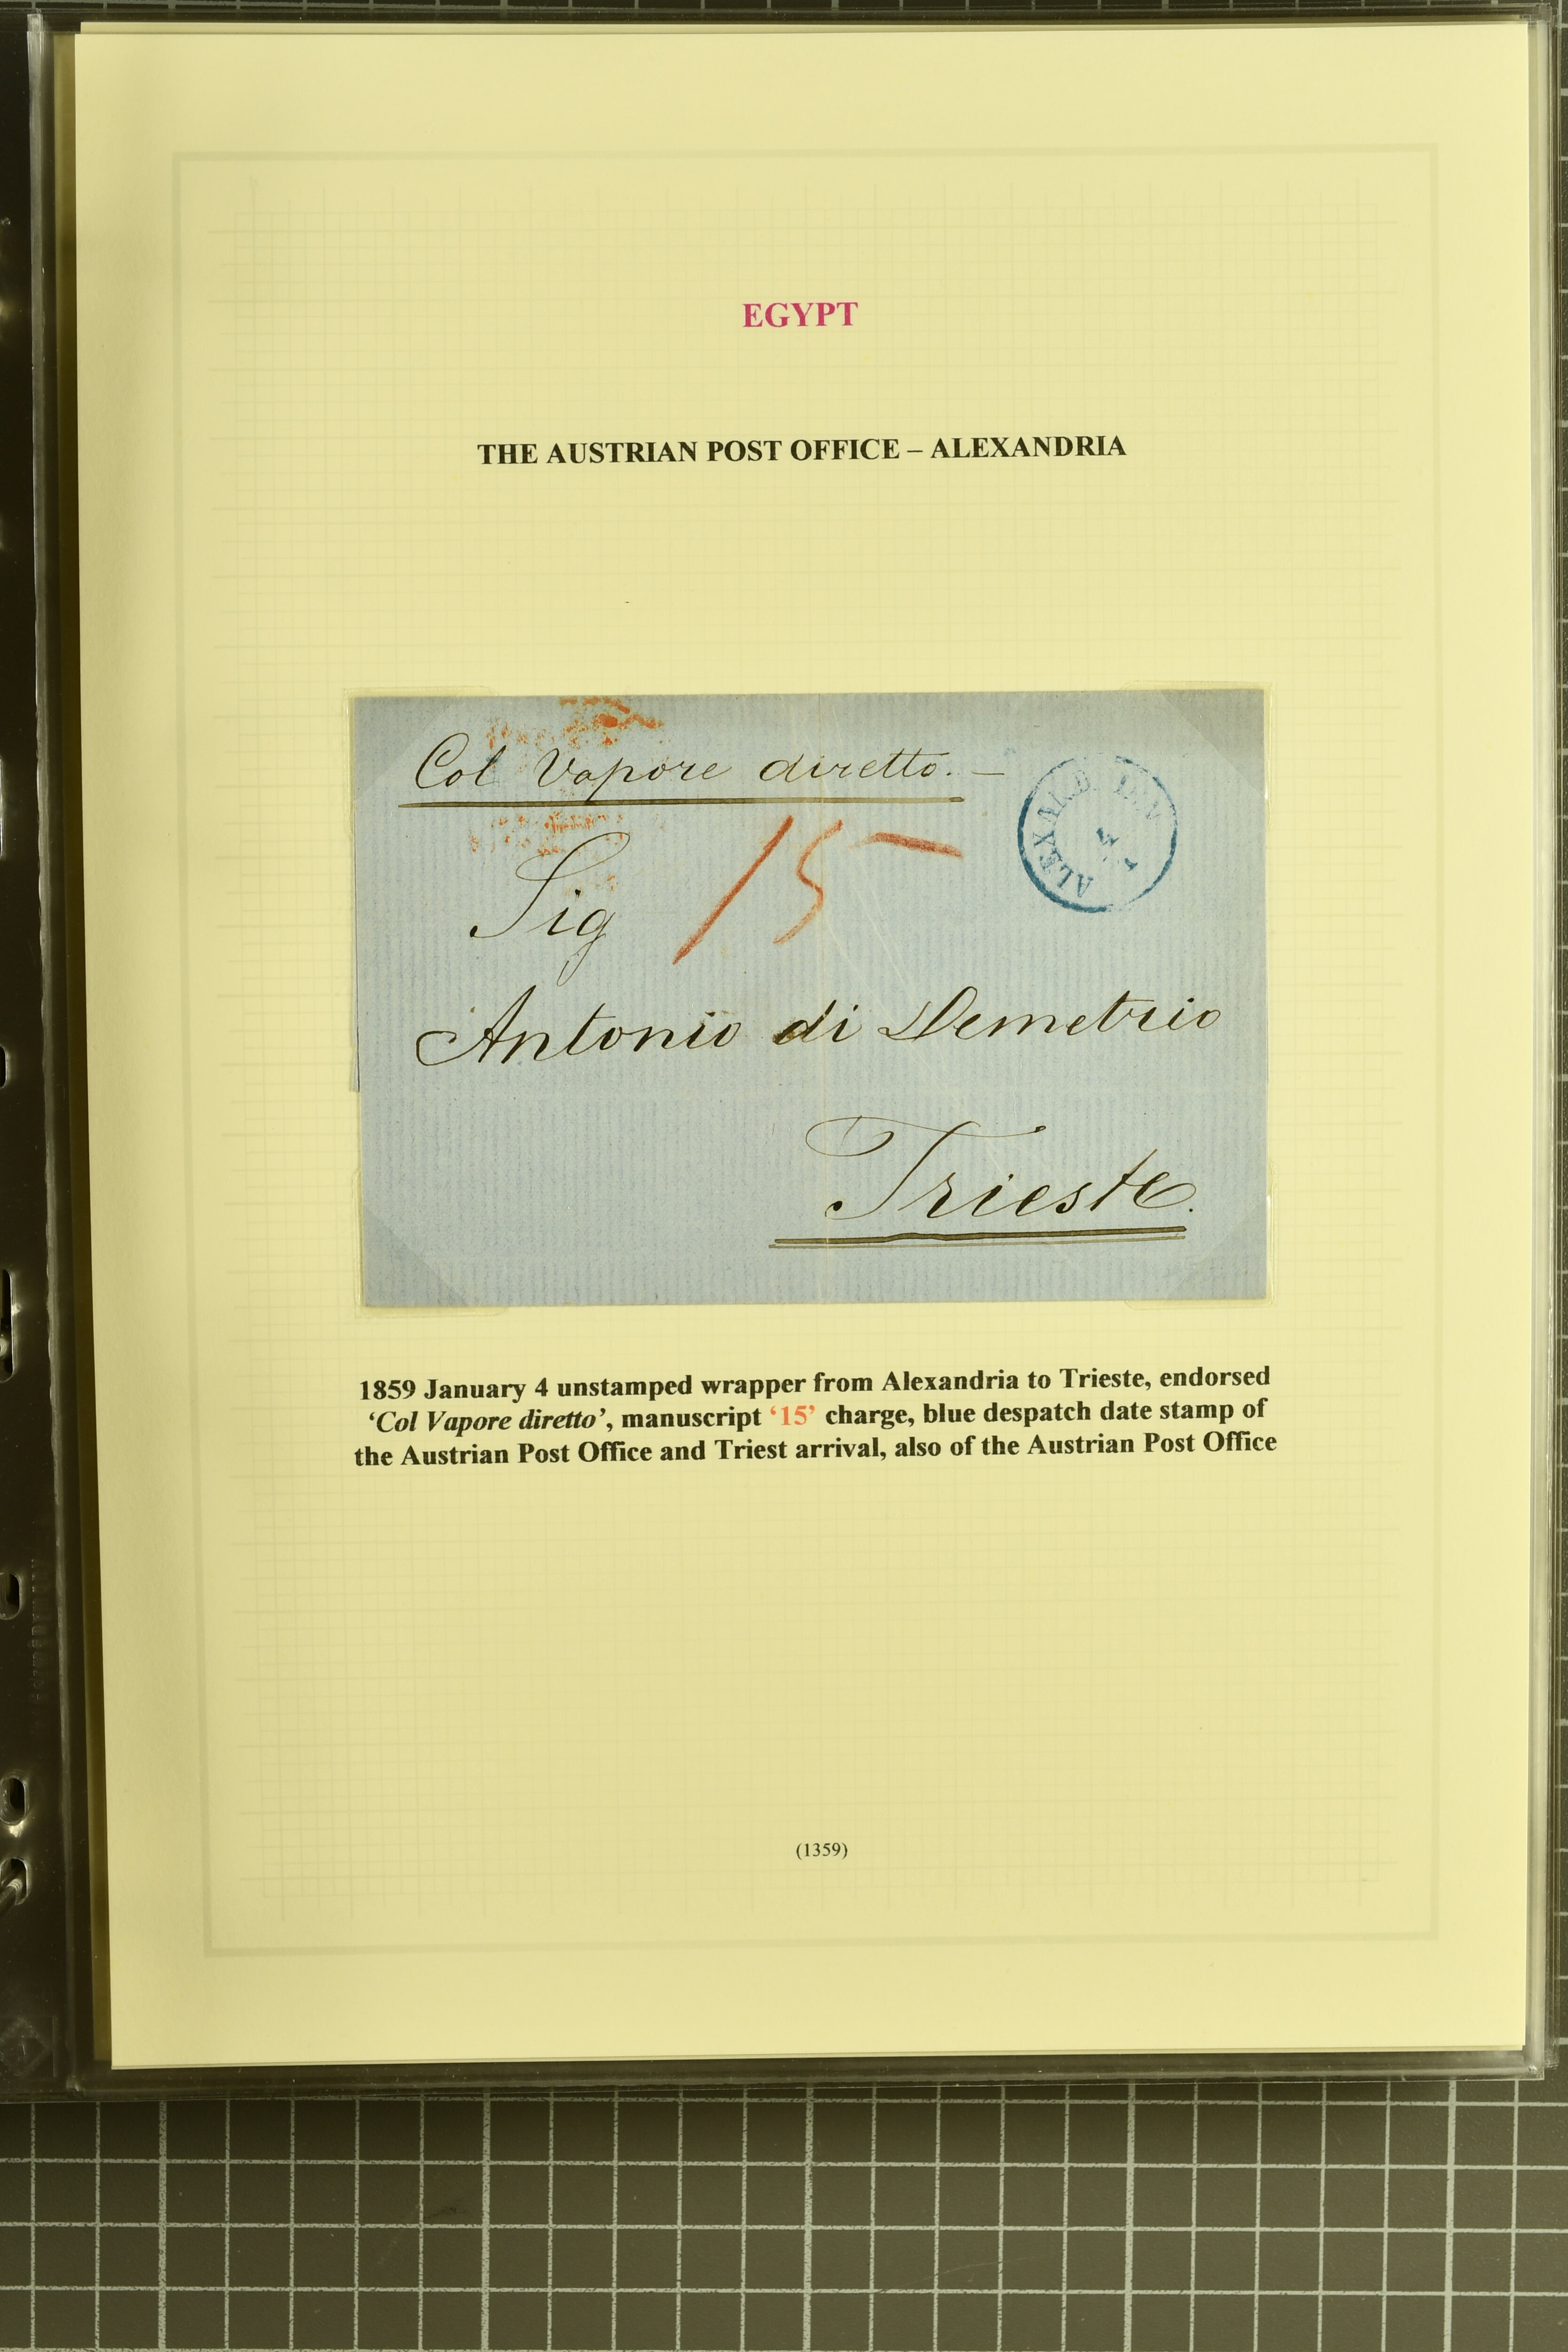 EGYPT
THE AUSTRIAN POST OFFICE – ALEXANDRIA
Col Vapore diretto. –
15
Sig
Antonio di Demetrio
Trieste.
1859 January 4 unstamped wrapper from Alexandria to Trieste, endorsed
‘Col Vapore diretto’, manuscript ‘15’ charge, blue despatch date stamp of
the Austrian Post Office and Triest arrival, also of the Austrian Post Office
(1359)